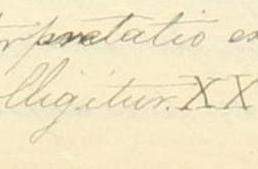 rpretatio ex
lligitur. XX